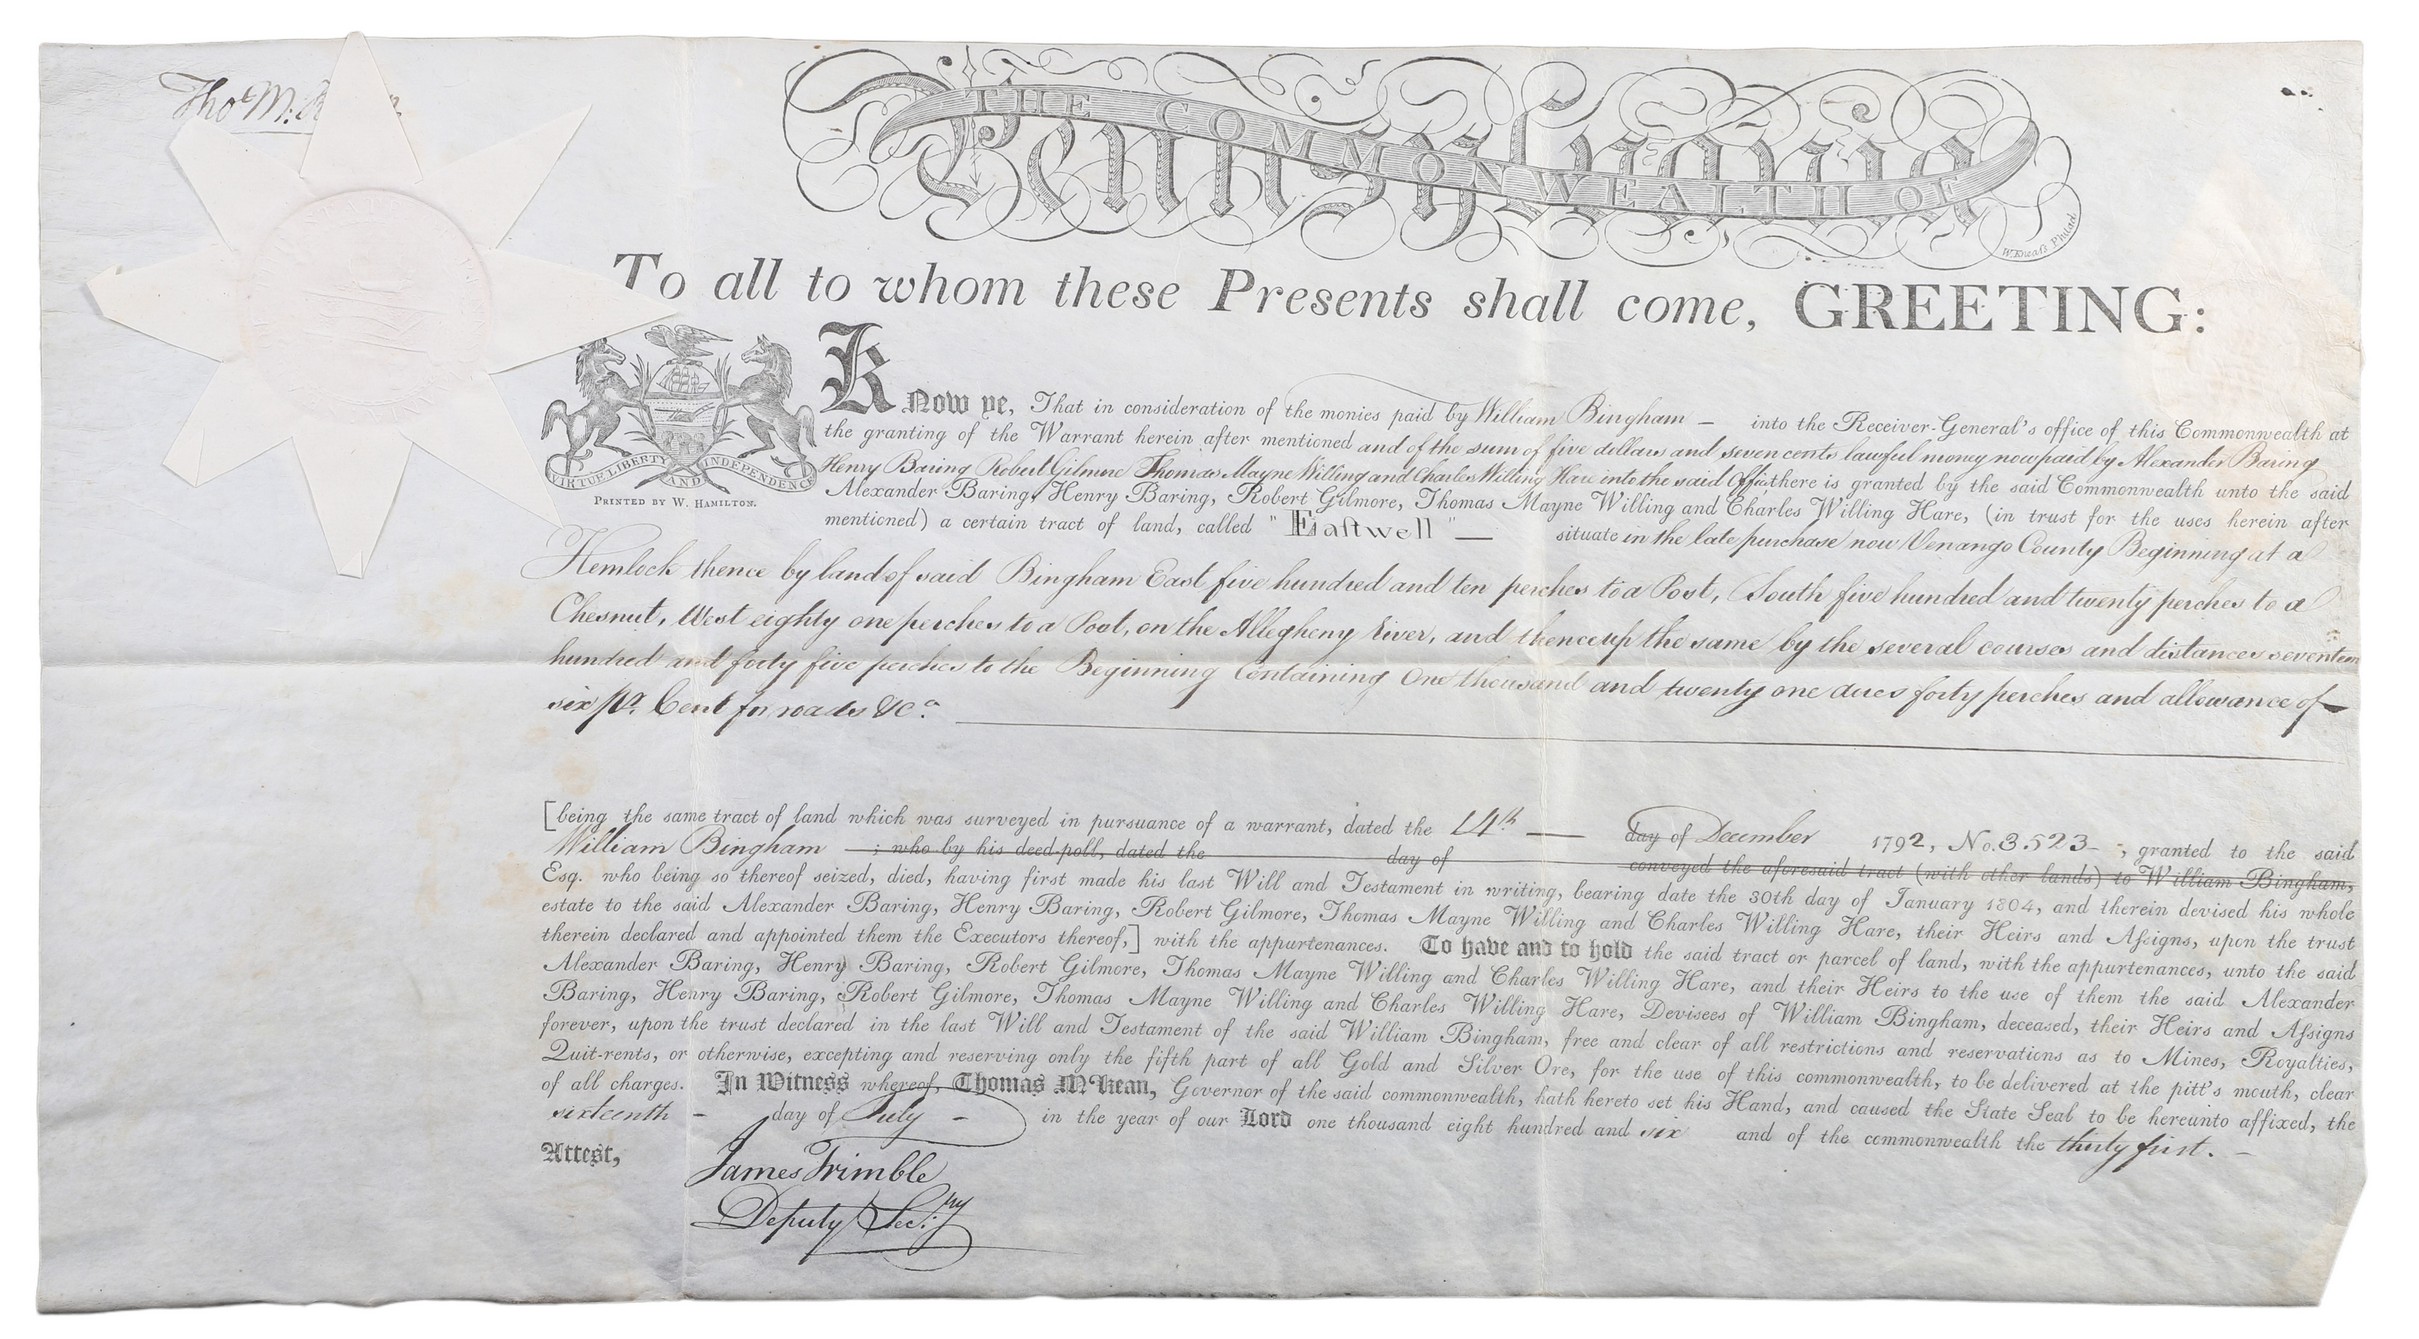 Tho M:
THE COMMONWEALTH OF
Pennsylvania
W. Kneass Philad.
To all to whom these Presents shall come, GREETING:
VIRTUE LIBERTY AND INDEPENDENCE
PRINTED BY W. HAMILTON.
Know ye, That in consideration of the monies paid by William Bingham – into the Receiver-General's office of this Commonwealth at
the granting of the Warrant herein after mentioned and of the sum of five dollars and seven cents lawful money now paid by Alexander Baring
Henry Baring Robert Gilmore Thomas Mayne Willing and Charles Willing Hare into the said Office there is granted by the said Commonwealth unto the said
Alexander Baring, Henry Baring, Robert Gilmore, Thomas Mayne Willing and Charles Willing Hare, (in trust for the uses herein after
mentioned) a certain tract of land, called "Eastwell" — situate in the late purchase now Venango County Beginning at a
Hemlock thence by land of said Bingham East five hundred and ten perches to a Post, South five hundred and twenty perches to a
Chesnut, West eighty one perches to a Post, on the Allegheny River, and thence up the same by the several courses and distances seventeen
hundred and forty five perches to the Beginning Containing One thousand and twenty one acres forty perches and allowance of
six pr. Cent for roads &c.
[being the same tract of land which was surveyed in pursuance of a warrant, dated the 14th — day of December 1792, No. 3.523 -, granted to the said
William Bingham ; who by his deed-poll, dated the day of conveyed the aforesaid tract (with other lands) to William Bingham,
Esq. who being so thereof seized, died, having first made his last Will and Testament in writing, bearing date the 30th day of January 1804, and therein devised his whole
estate to the said Alexander Baring, Henry Baring, Robert Gilmore, Thomas Mayne Willing and Charles Willing Hare, their Heirs and Assigns, upon the trust
therein declared and appointed them the Executors thereof,] with the appurtenances. To have and to hold the said tract or parcel of land, with the appurtenances, unto the said
Alexander Baring, Henry Baring, Robert Gilmore, Thomas Mayne Willing and Charles Willing Hare, and their Heirs to the use of them the said Alexander
Baring, Henry Baring, Robert Gilmore, Thomas Mayne Willing and Charles Willing Hare, Devisees of William Bingham, deceased, their Heirs and Assigns
forever, upon the trust declared in the last Will and Testament of the said William Bingham, free and clear of all restrictions and reservations as to Mines, Royalties,
Quit-rents, or otherwise, excepting and reserving only the fifth part of all Gold and Silver Ore, for the use of this commonwealth, to be delivered at the pitt's mouth, clear
of all charges. In Witness whereof, Thomas M'Kean, Governor of the said commonwealth, hath hereto set his Hand, and caused the State Seal to be hereunto affixed, the
sixteenth – day of July – in the year of our Lord one thousand eight hundred and six and of the commonwealth the thirty first. –
Attest,
James Trimble
Deputy Sec:ry